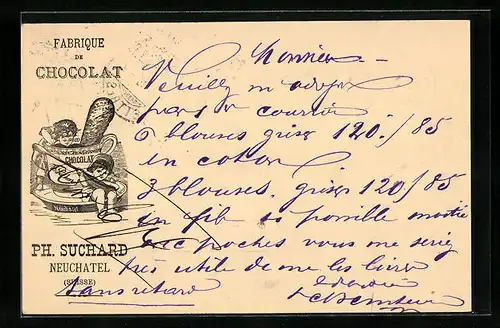 FABRIQUE
DE
CHOCOLAT
CHOCOLAT
PH. SUCHARD
NEUCHATEL
(SUISSE)
Monsieur
Veuillez m'adresser
par courrier
6 blouses grises 120./85
en coton
3 blouses grises 120/85
en fil si possible moitié
avec poches vous me seriez
très utile de me les livrer
sans retard